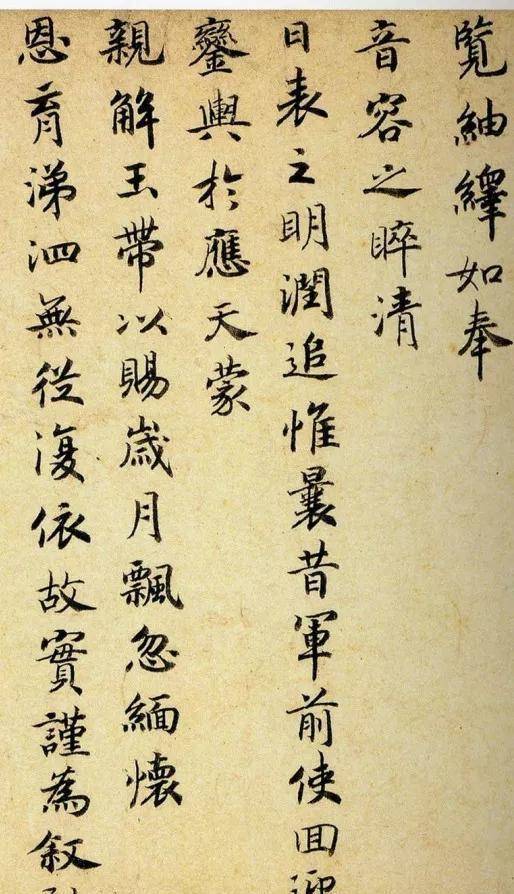 覽紬繹如奉
音容之睟清
日表之明潤追惟曩昔軍前使回迎
鑾輿於應天蒙
親解玉帶以賜歲月飄忽緬懷
恩育涕泗無從復依故實謹為叙